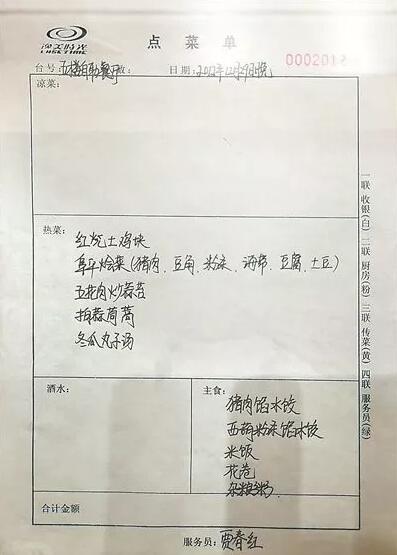 渔美时光
LUSE TIME
点 菜 单
台号: 五楼自助餐厅 数:
日期: 2012年12月29日晚
0002012
凉菜:
热菜:
红烧土鸡块
阜平烩菜(猪肉、豆角、粉条、海带、豆腐、土豆)
五花肉炒蒜苔
拍蒜茼蒿
冬瓜丸子汤
酒水:
主食:
猪肉馅水饺
西葫粉条馅水饺
米饭
花卷
杂粮粥
合计金额
服务员: 贾春红
一联 收银(白) 二联 厨房(粉) 三联 传菜(黄) 四联 服务员(绿)